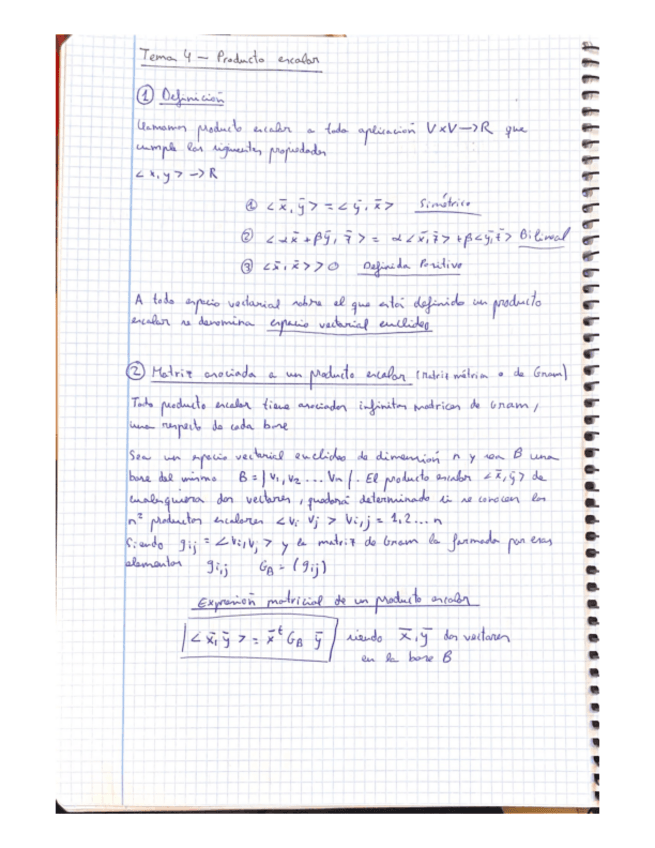 Tema 4 — Producto escalar
① Definición
Llamamos producto escalar a toda aplicación V×V→R que
cumple las siguientes propiedades
<x, y> → R
① <x̄, ȳ> = <ȳ, x̄> Simétrico
② <αx̄ + βȳ, z̄> = α<x̄, z̄> + β<ȳ, z̄> Bilineal
③ <x̄, x̄> > 0 Definida Positiva
A todo espacio vectorial sobre el que está definido un producto
escalar se denomina espacio vectorial euclídeo
② Matriz asociada a un producto escalar (Matriz métrica o de Gram)
Todo producto escalar tiene asociadas infinitas matrices de Gram,
una respecto de cada base
Sea un espacio vectorial euclídeo de dimensión n y sea B una
base del mismo B = | v₁, v₂ ... Vn |. El producto escalar <x̄, ȳ> de
cualesquiera dos vectores, quedará determinado si se conocen los
n² productos escalares <vi vj> ∀i,j = 1,2...n
Siendo gij = <vi, vj> y la matriz de Gram la formada por esos
elementos gi,j G_B = (gij)
Expresión matricial de un producto escalar
<x̄, ȳ> = x̄ᵗ G_B ȳ siendo x̄, ȳ dos vectores
en la base B